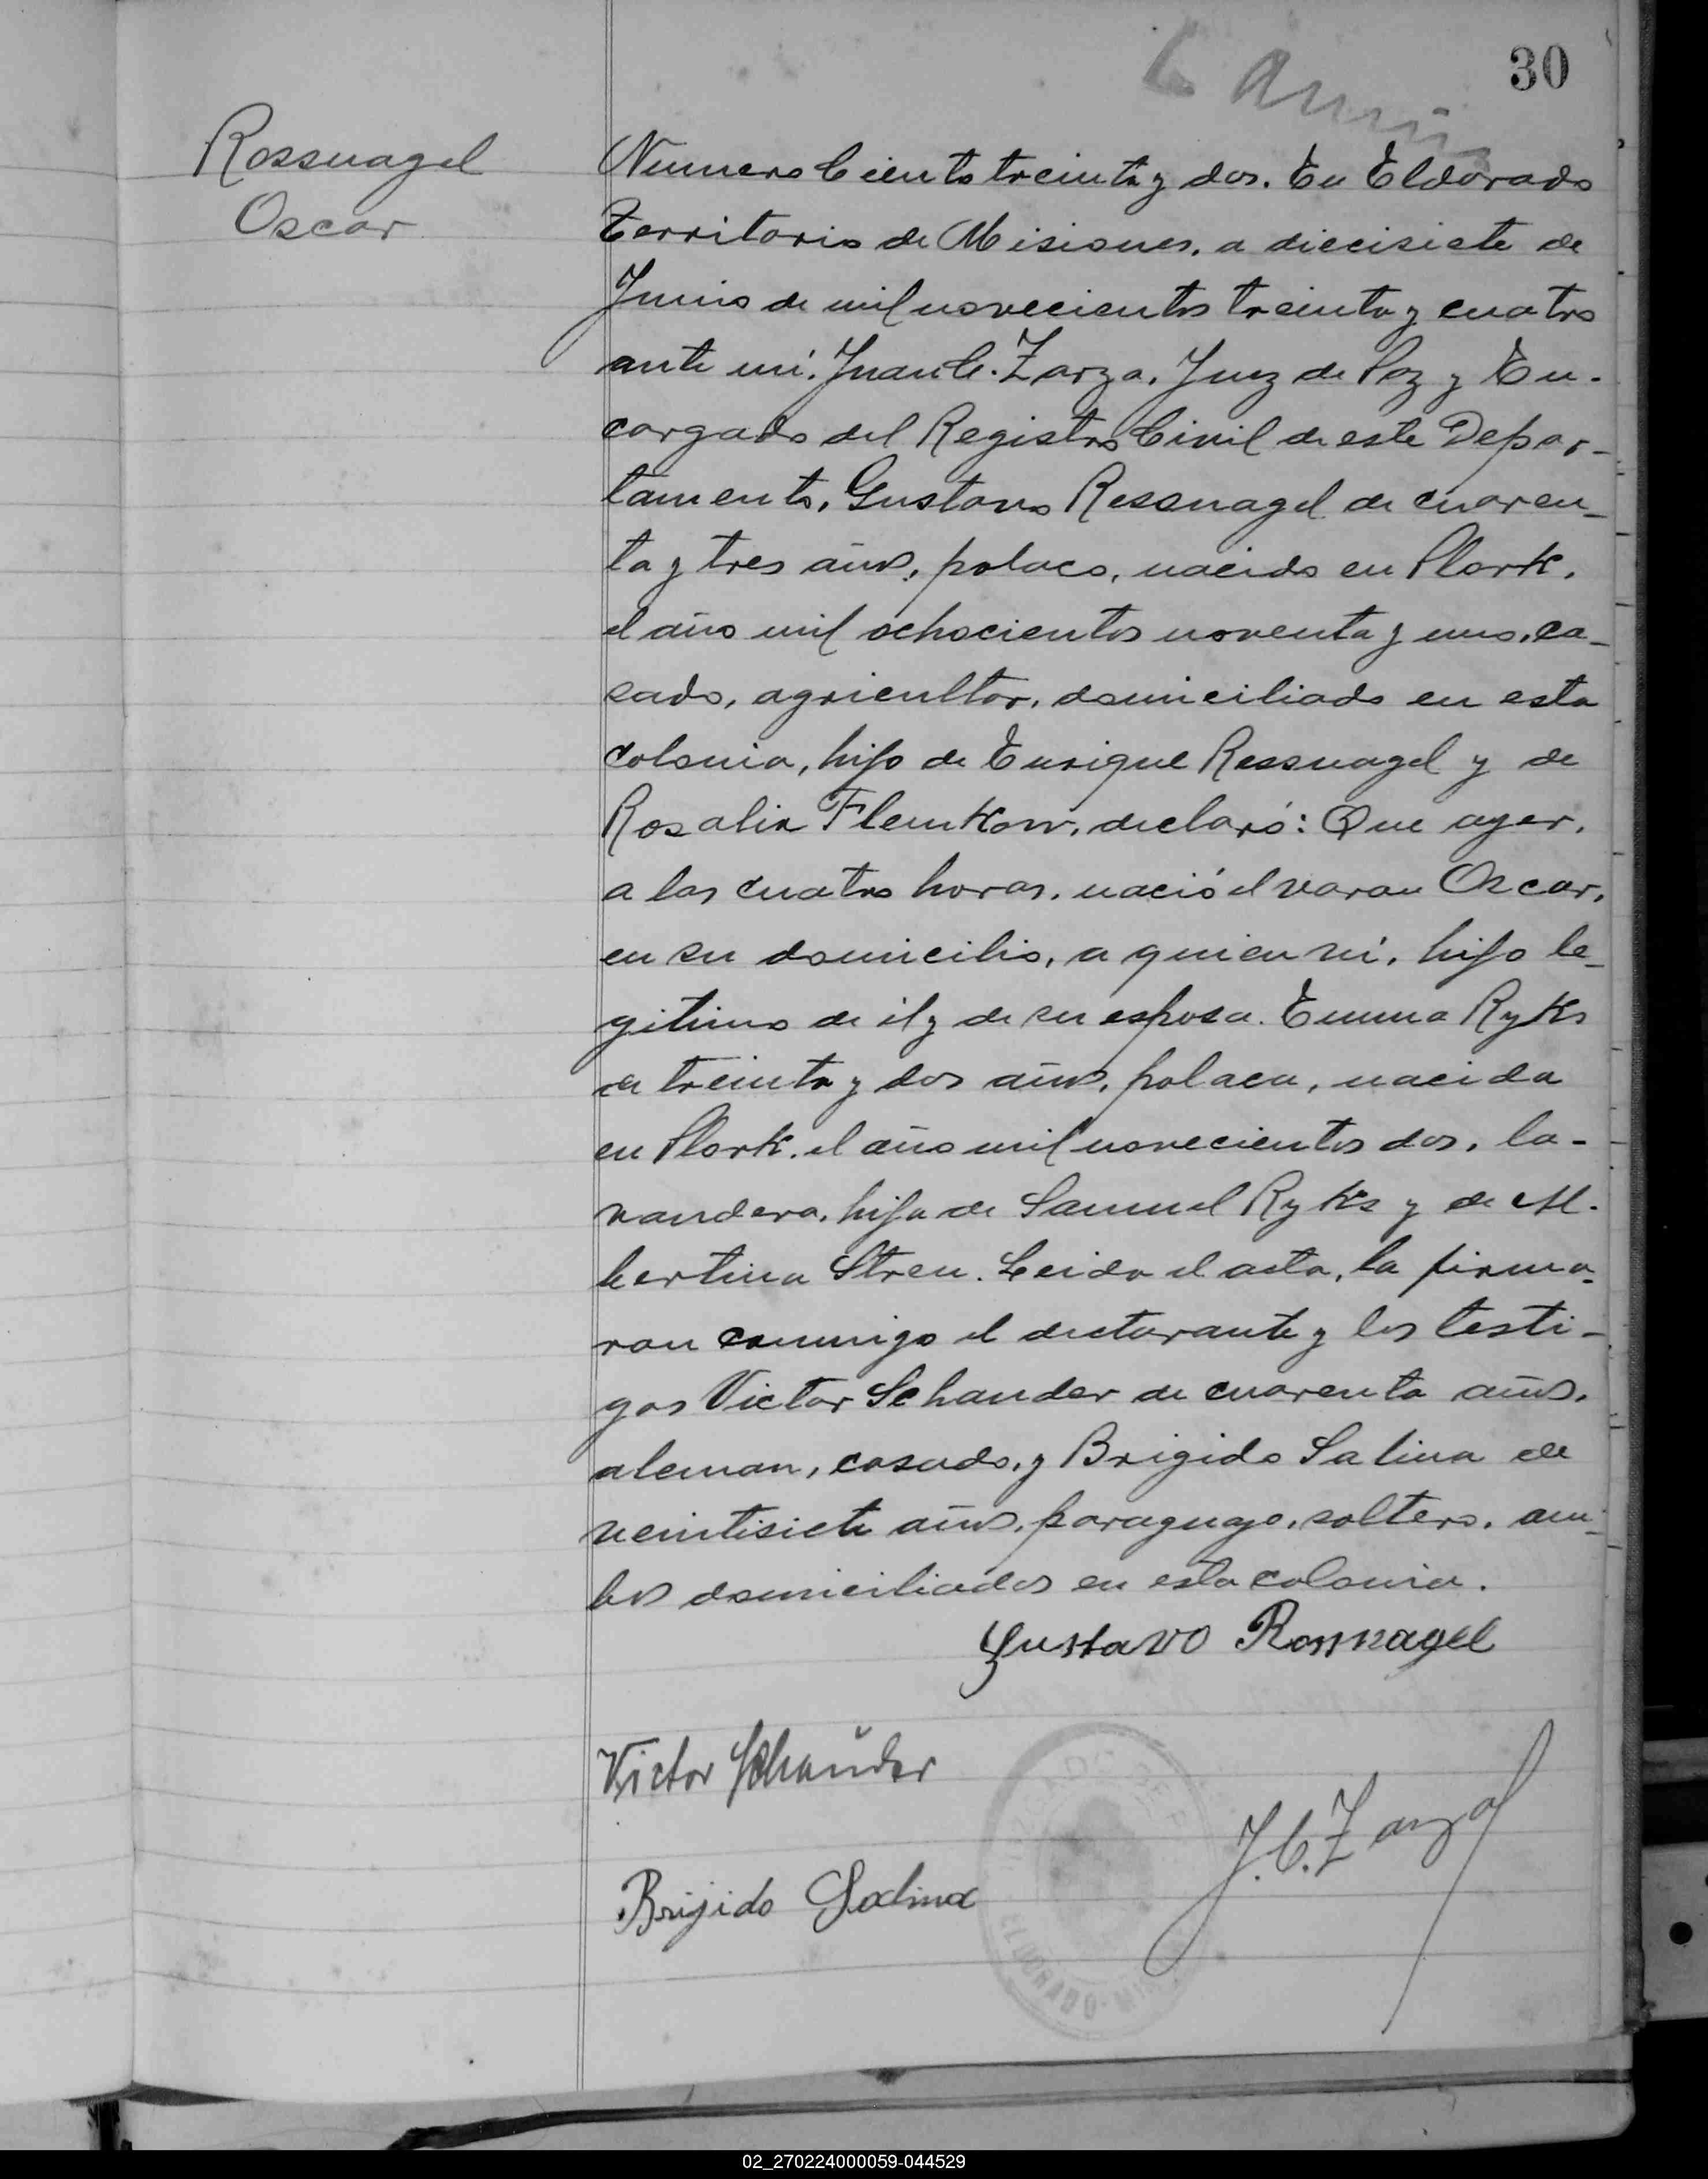 30
Rossnagel
Oscar
Numero Ciento treinta y dos. En Eldorado
Territorio de Misiones, a diecisiete de
Junio de mil novecientos treinta y cuatro
ante mí: Juan C. Zarza, Juez de Paz y En-
cargado del Registro Civil de este Depar-
tamento, Gustavo Rossnagel de cuaren-
ta y tres años, polaco, nacido en Plork,
el año mil ochocientos noventa y uno, ca-
sado, agricultor, domiciliado en esta
colonia, hijo de Enrique Rossnagel y de
Rosalia Flemkow, declaró: Que ayer,
a las cuatro horas, nació el varon Oscar,
en su domicilio, a quien ví, hijo le-
gitimo de él y de su esposa Emma Ryks
de treinta y dos años, polaca, nacida
en Plork, el año mil novecientos dos, la-
vandera, hija de Samuel Ryks y de Al-
bertina Stren. Leida el acta, la firma-
ron conmigo el declarante y los testi-
gos Victor Schander de cuarenta años,
aleman, casado, y Brigido Salina de
veintisiete años, paraguayo, soltero, am-
bos domiciliados en esta colonia.
Gustavo Rossnagel
Victor Schander
J.C. Zarza
Brijido Salina
ELDORADO
02_270224000059-044529